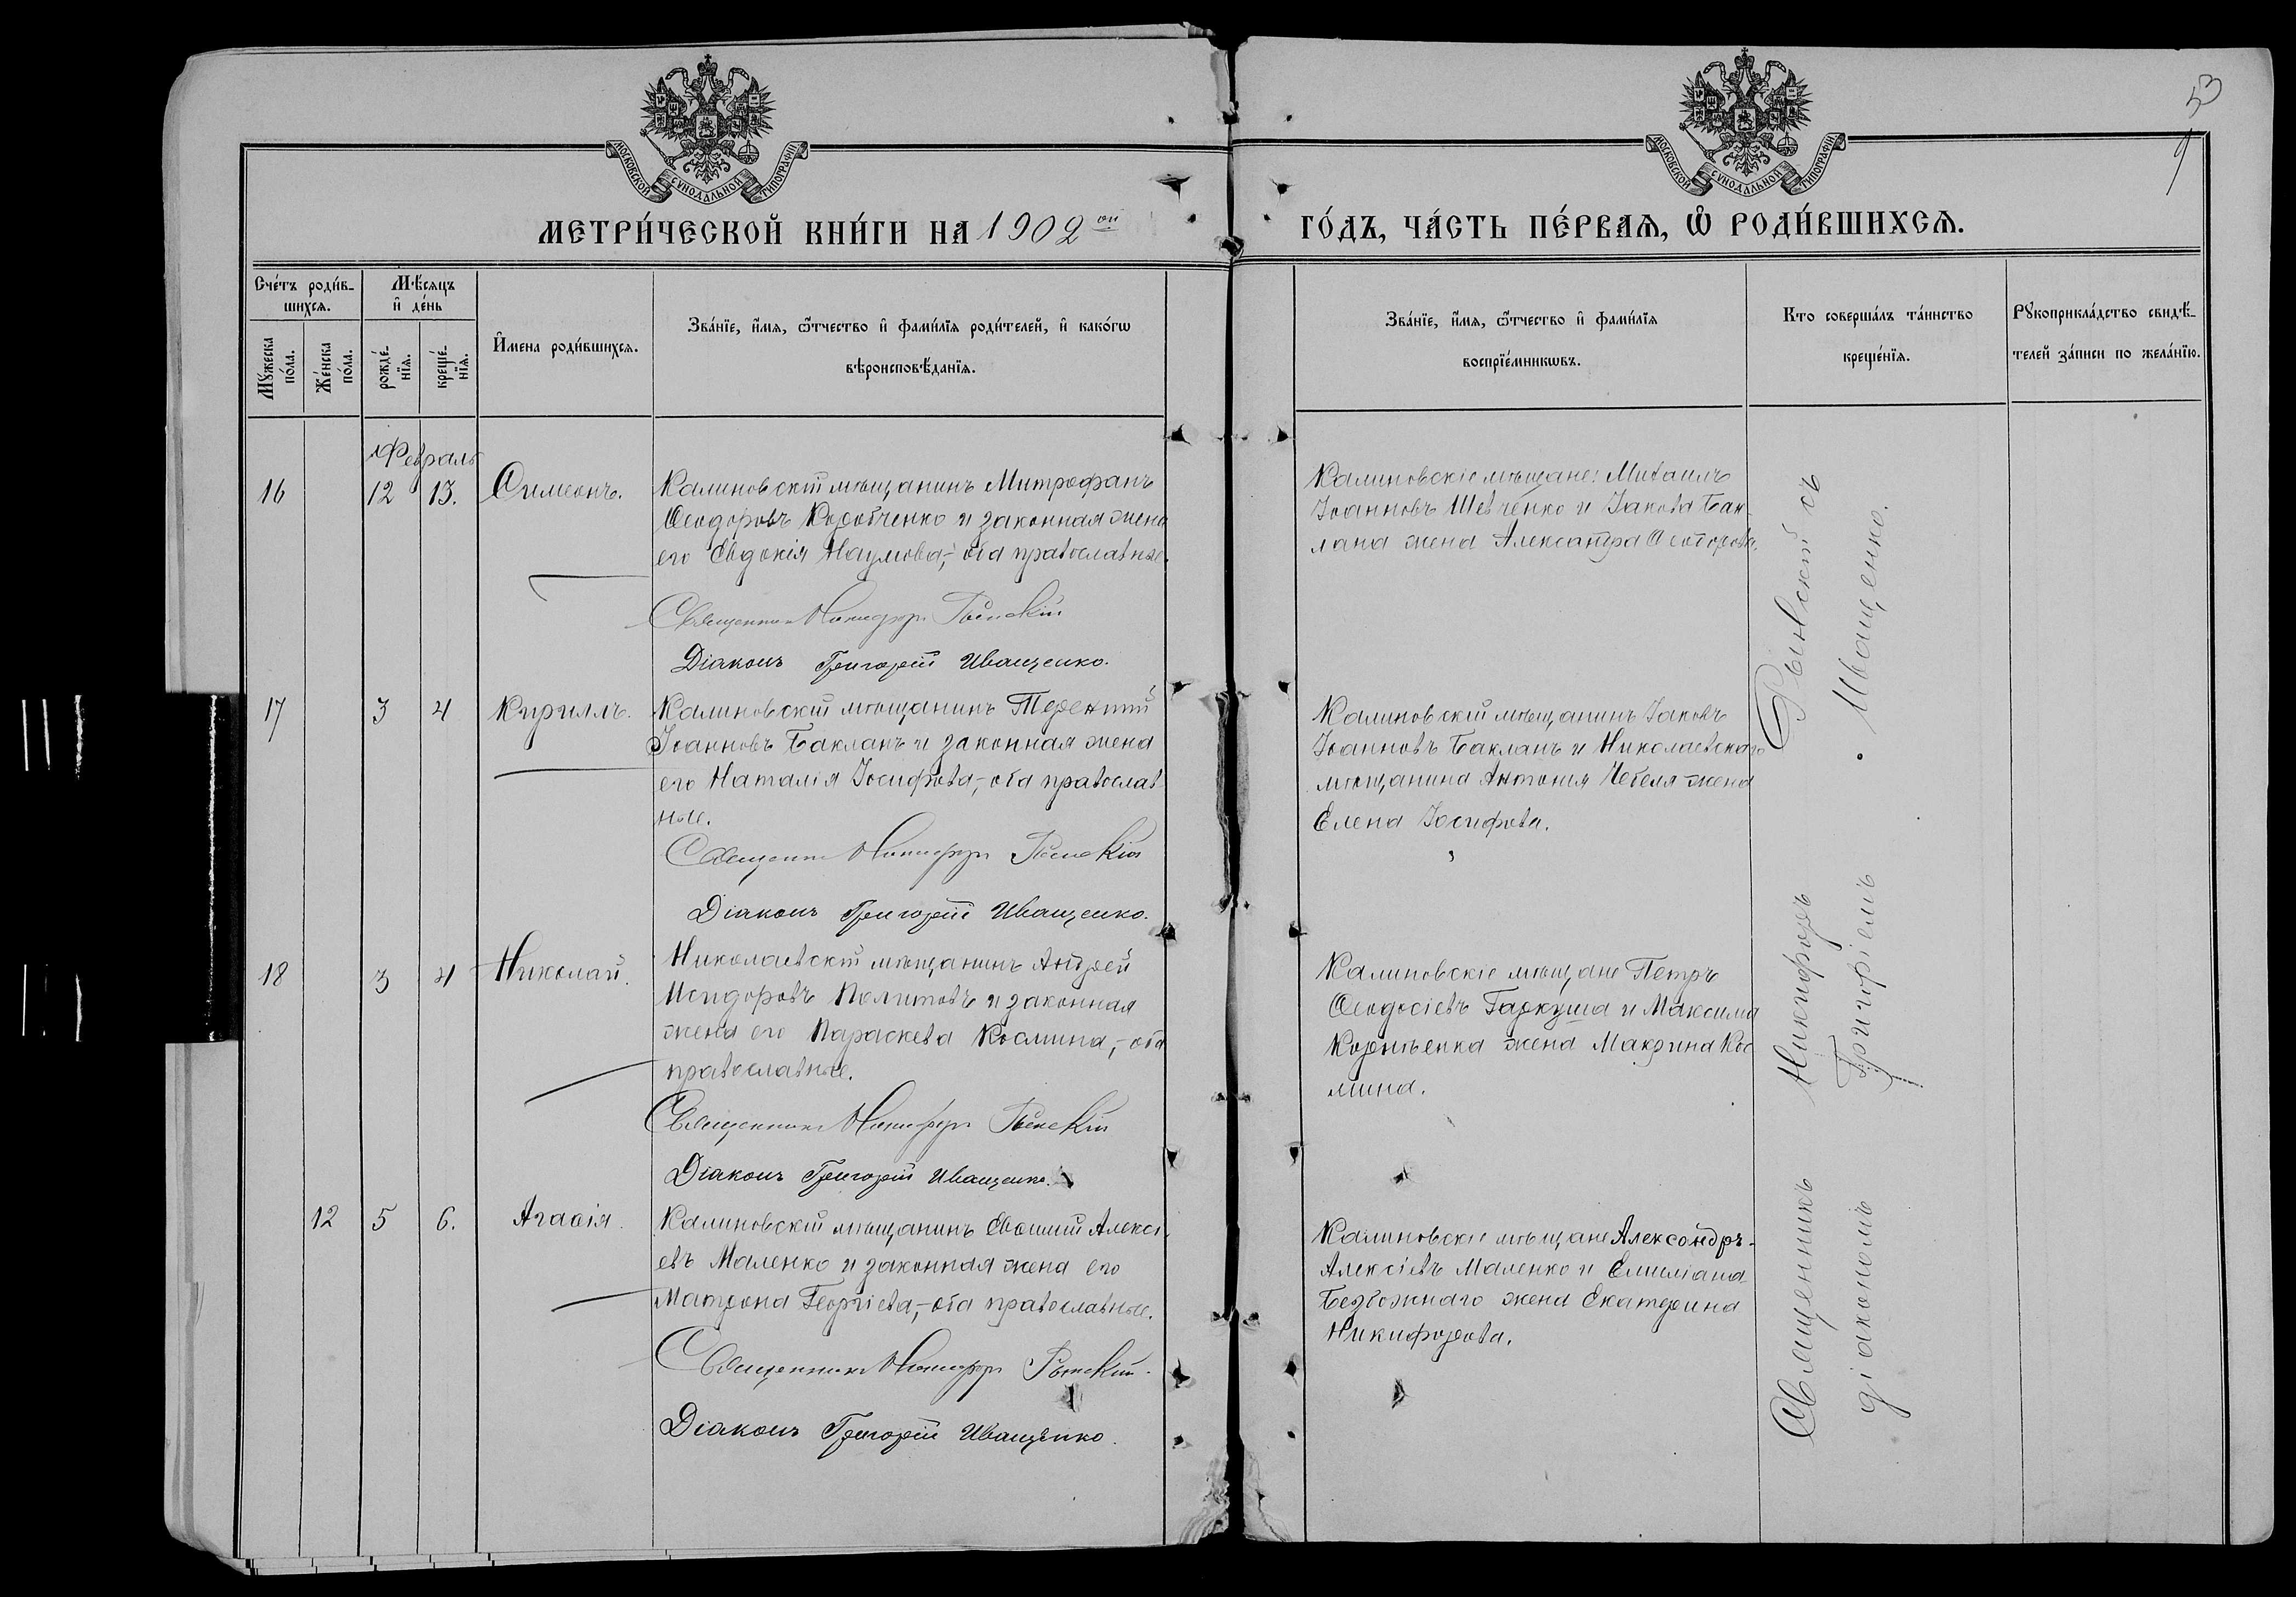 53
МОСКОВСКОЙ СѴНОДАЛЬНОЙ ТИПОГРАФІИ
МОСКОВСКОЙ СѴНОДАЛЬНОЙ ТИПОГРАФІИ
МЕТРИ́ЧЕСКОЙ КНИ́ГИ НА 1902 ой
ГО́ДЪ, ЧА́СТЬ ПЕ́РВАѦ, Ѡ҆ РОДИ́ВШИХСѦ.
Сче́тъ роди́в-
шихсѧ.
Мꙋ́жеска по́ла.
Же́нска по́ла.
Мѣ́сѧцъ
и҆ де́нь
рожде́-
нїѧ.
креще́-
нїѧ.
И҆мена роди́вшихсѧ.
Зва́нїе, и҆́мѧ, ѻ҆́тчество и҆ фами́лїѧ роди́телей, и҆ како́гѡ
вѣроисповѣ́данїѧ.
Зва́нїе, и҆́мѧ, ѻ҆́тчество и҆ фами́лїѧ
воспрїе́мникѡвъ.
Кто соверша́лъ та́инство
креще́нїѧ.
Рꙋкоприкла́дство свидѣ́-
телей за́писи по жела́нїю.
Февраль
16 12 13. Симеонъ.
Калиновскій мѣщанинъ Митрофанъ
Ѳеодоровъ Коробченко и законная жена
его Евдокія Наумова,- оба православные.
Священникъ Никифоръ Рынскій
Діаконъ Григорій Иващенко.
Калиновскіе мѣщане: Михаилъ
Іоанновъ Шевченко и Іакова Бак-
лана жена Александра Ѳеодорова.
17 3 4 Кириллъ.
Калиновскій мѣщанинъ Терентій
Іоанновъ Бакланъ и законная жена
его Наталія Іосифова,- оба православ
ные.
Священникъ Никифоръ Рынскій
Діаконъ Григорій Иващенко.
Калиновскій мѣщанинъ Іаковъ
Іоанновъ Бакланъ и Николаевскаго
мѣщанина Антонія Чебеля жена
Елена Іосифова.
18 3 4 Николай.
Николаевскій мѣщанинъ Андрей
Исидоровъ Политовъ и законная
жена его Параскева Косьмина,- оба
православные.
Священникъ Никифоръ Рынскій
Діаконъ Григорій Иващенко.
Калиновскіе мѣщане Петръ
Ѳеодосіевъ Гаркуша и Максима
жена Макрина Кос
мина.
12 5 6. Агафія.
Калиновскій мѣщанинъ Евѳимій Алексі
евъ Маленко и законная жена его
Матрона Георгіева,- оба православные.
Священникъ Никифоръ Рынскій.
Діаконъ Григорій Иващенко.
Калиновскіе мѣщане Александръ-
Алексіевъ Маленко и Емиліана
Безбожнаго жена Екатерина
Никифорова.
Священникъ Никифоръ Рынскій съ
діакономъ Григоріемъ Иващенко.